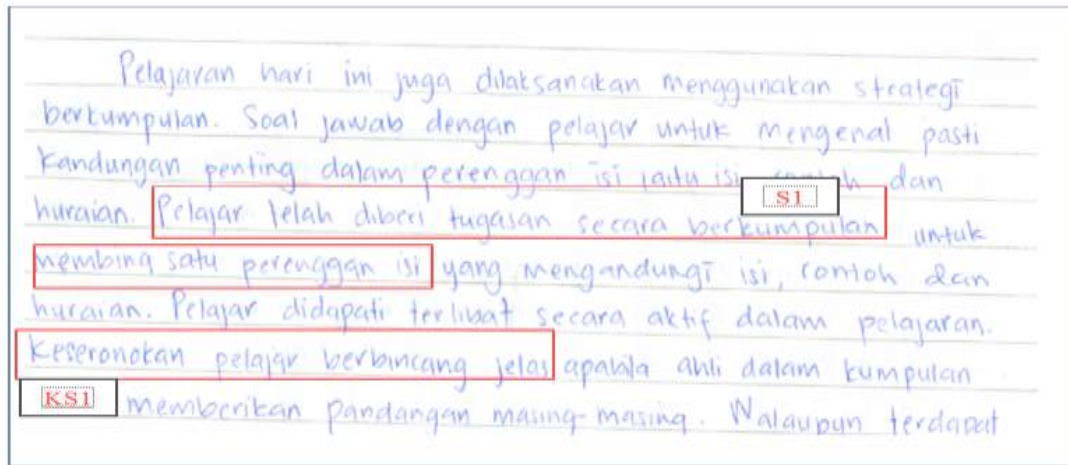 Pelajaran hari ini juga dilaksanakan menggunakan strategi
berkumpulan. Soal jawab dengan pelajar untuk mengenal pasti
kandungan penting dalam perenggan isi iaitu isi, dan
S1
huraian. Pelajar telah diberi tugasan secara berkumpulan untuk
membina satu perenggan isi yang mengandungi isi, contoh dan
huraian. Pelajar didapati terlibat secara aktif dalam pelajaran.
Keseronokan pelajar berbincang jelas apabila ahli dalam kumpulan
KS1 memberikan pandangan masing-masing. Walaupun terdapat